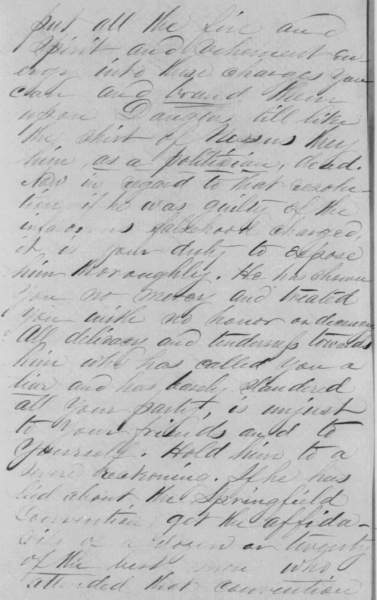 put all the fire and
spirit and vehement en-
ergy into these charges you
can and brand them
upon Douglas till like
the shirt of Nessus they
him, as a politician, dead.
Now in regard to that resolu-
tion, if he was guilty of the
infamous falsehood charged
it is your duty to expose
him thoroughly. He has shown
you no mercy and treated
you with no honor or decency
All delicacy and tenderness towards
him who has called you a
liar and has basely slandered
all your party, is unjust
to your friends and to
yourself. Hold him to a
severe reckoning. If he has
lied about the Springfield
Convention get the affida-
vits of a dozen or twenty
of the best men who
attended that convention